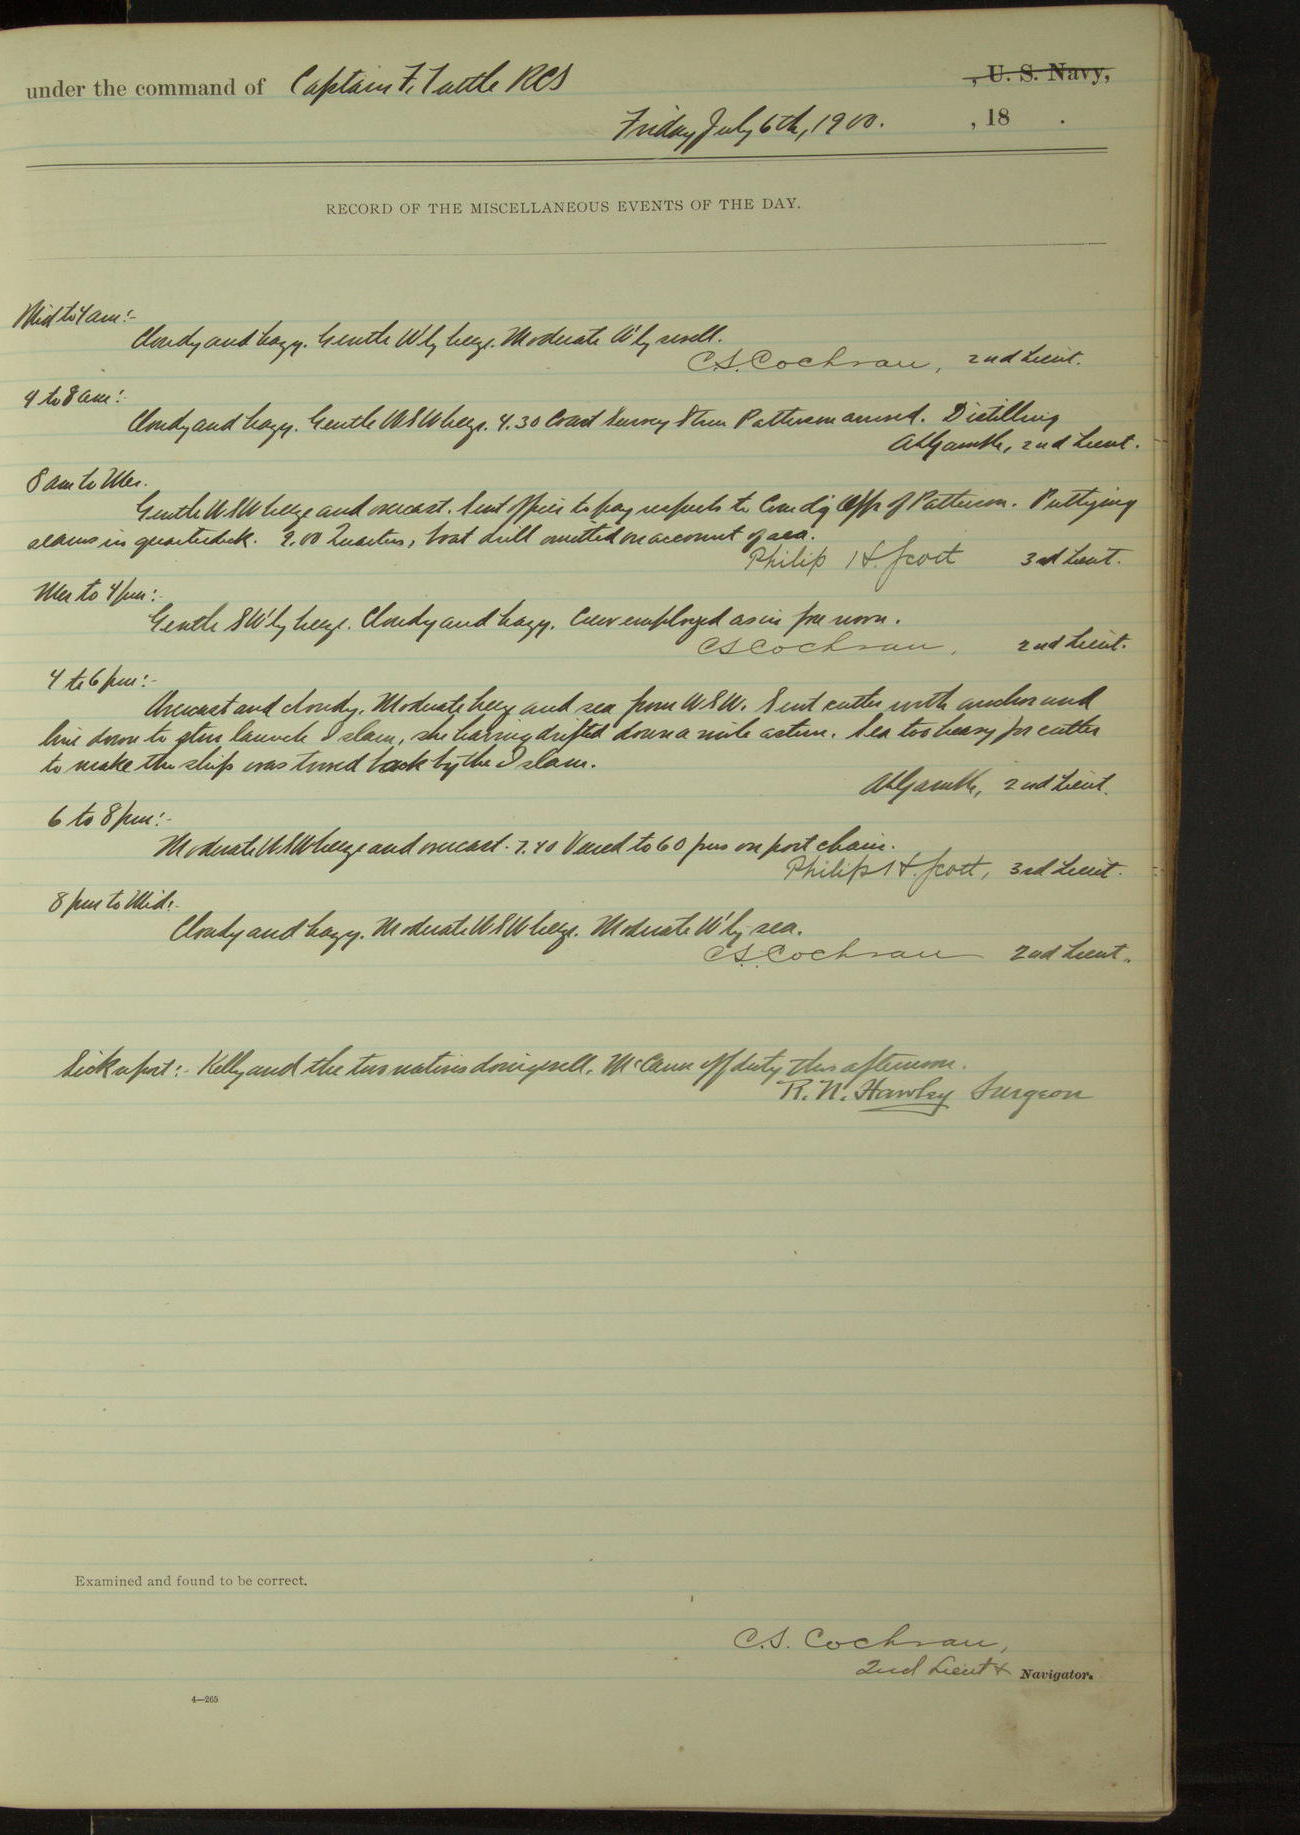 under the command of Captain F. Tuttle RCS , U. S. Navy,
Friday July 6th, 1900. , 18 .
RECORD OF THE MISCELLANEOUS EVENTS OF THE DAY.
Mid to 4 am:-
Cloudy and hazy. Gentle W'ly breeze. Moderate W'ly swell.
C.S. Cochran, 2nd Lieut.
4 to 8 am:-
Cloudy and hazy. Gentle WSW breeze. 4.30 Coast Survey Stmr Patterson arrived. Distilling
2nd Lieut.
8 am to Mer.
Gentle WSW breeze and overcast. Sent officer to pay respects to Comd'g Offr of Patterson. Puttying
seams in quarterdeck. 9.00 Quarters, boat drill omitted on account of sea.
Philip H. Scott 3rd Lieut.
Mer to 4 pm:-
Gentle SW'ly breeze. Cloudy and hazy. Crew employed as in fore noon.
C S Cochran, 2nd Lieut.
4 to 6 pm:-
Overcast and cloudy. Moderate breeze and sea from WSW. Sent cutter with anchor and
line down to stmr launch Islam, she having drifted down a mile astern. Sea too heavy for cutter
to make the ship was towed back by the Islam.
2nd Lieut.
6 to 8 pm:-
Moderate WSW breeze and overcast. 7.40 Veered to 60 fms on port chain.
Philip H. Scott, 3rd Lieut.
8 pm to Mid:-
Cloudy and hazy. Moderate WSW breeze. Moderate W'ly sea.
C.S. Cochran 2nd Lieut.
Sick report:- Kelly and the two natives doing well. McCann off duty this afternoon.
R. N. Hawley Surgeon
Examined and found to be correct.
C.S. Cochran,
2nd Lieut & Navigator.
4—265